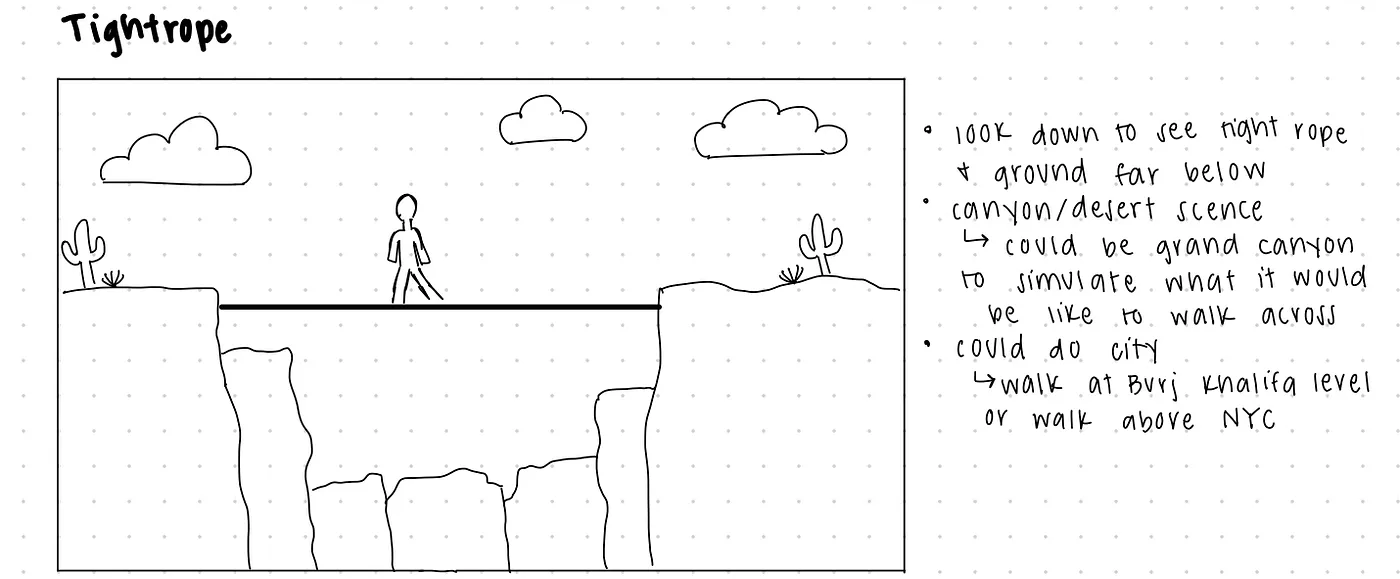 Tightrope
• look down to see tight rope
& ground far below
• canyon/desert scence
↳ could be grand canyon
to simulate what it would
be like to walk across
• could do city
↳ walk at Burj Khalifa level
or walk above NYC